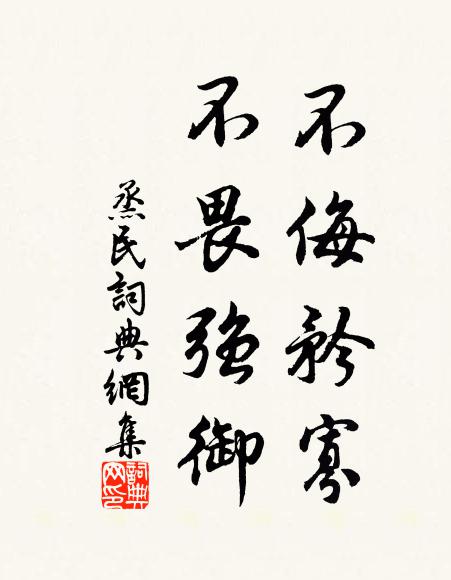 不侮矜寡
不畏強御
烝民詞典網集
詞典网印